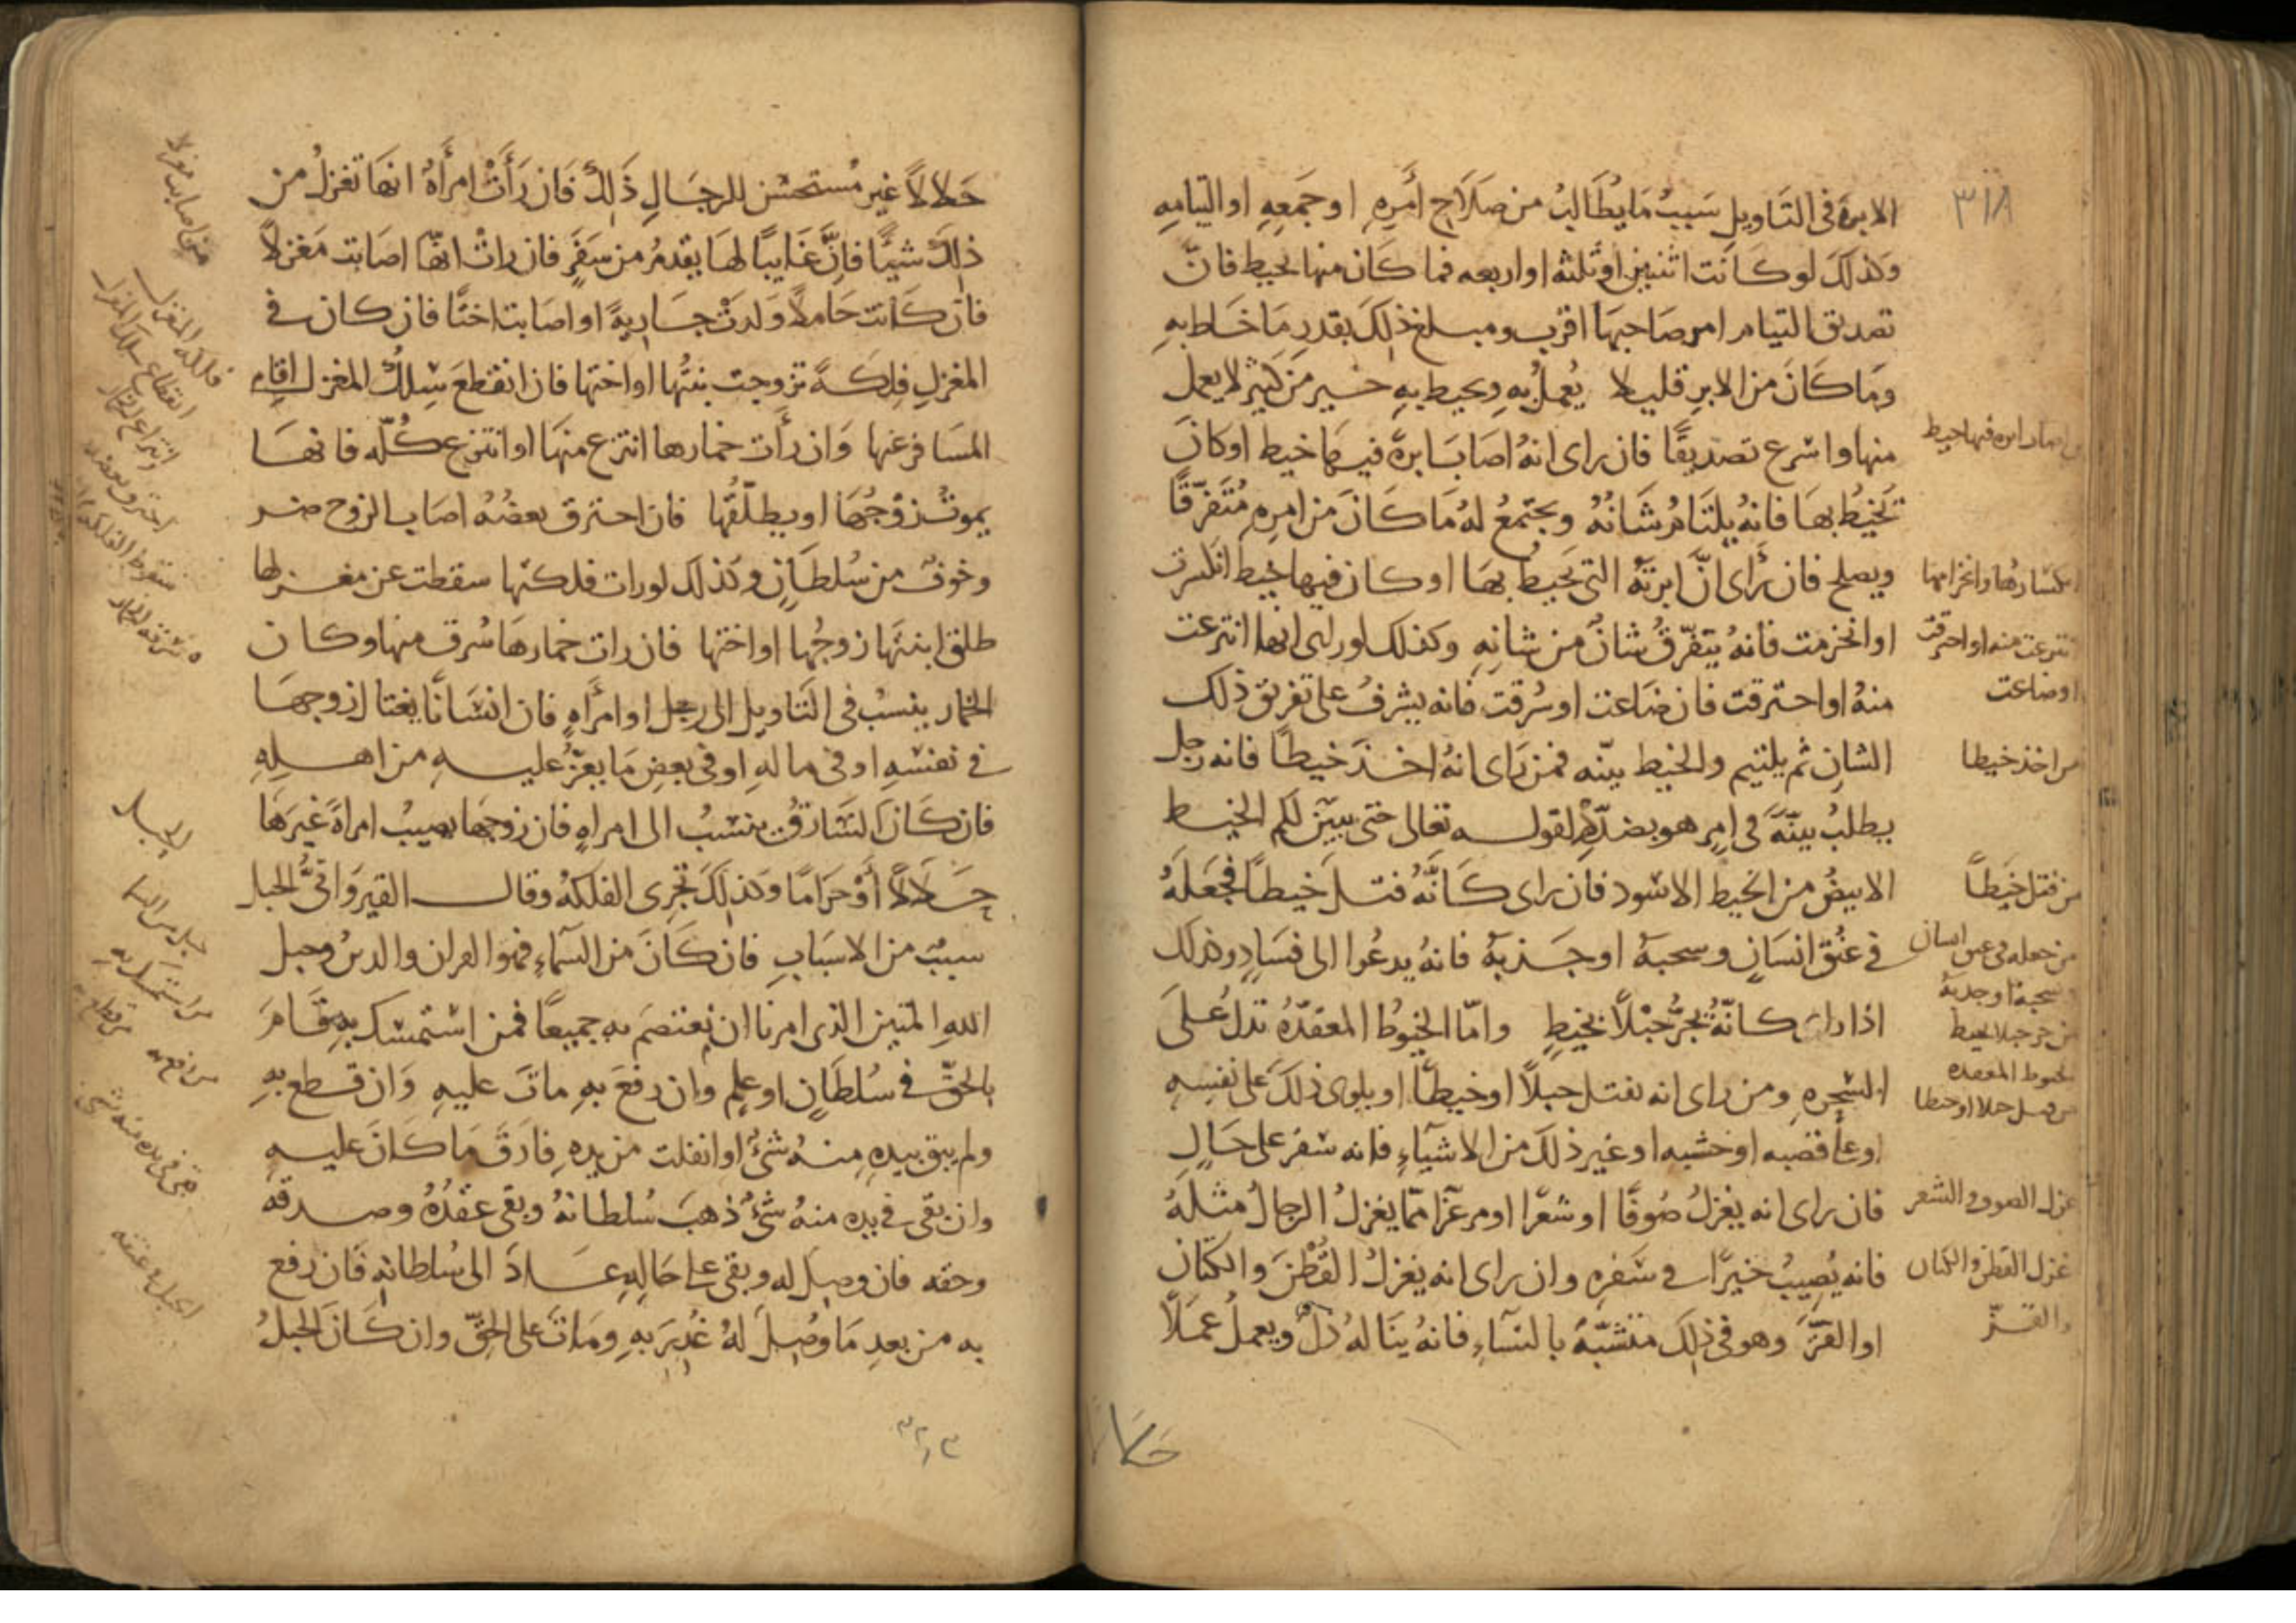 ٣١٨
الابرة في التَاويلِ سَبَبُ مَا يُطَالِبُ من صَلَاحِ أَمرِهِ او جَمعِهِ او التيامِهِ
وكذلكَ لو كانت اثنين او ثلثه او اربعه فما كَان منها يخيط فانّ
تصديق التيام امر صَاحبهَا اقرب ومبلغ ذلكَ بقدر مَا خَاط بهِ
وَمَا كَانَ من الابرِ قليلا يُعملُ بهِ ويخيط بهِ خير من كثير لا يعمل
منها واسرع تصديقًا فان راى انهُ اصَابَ ابرةً فيهَا خيط او كانَ
تَخيطُ بهَا فانهُ يلتَامُ شَانُهُ ويجتمعُ لهُ مَا كَانَ من امرِهِ مُتَفرّقًا
ويصلح فان رَأى انَّ ابرتَهُ التي يَخيط بهَا او كان فيها خيط انكسرت
او انخرمت فانهُ يتفرّقُ شانٌ من شانِهِ وكذلك لو راى انها انتزعت
منهُ او احترقت فان ضَاعت او سُرقت فانه يشرفُ على تفريق ذلك
الشانِ ثم يلتيم والخيط بيّنه فمن رَاى انهُ اخذَ خيطًا فانه رجل
يطلبُ بيّنَةً في امرٍ هو بصَدَدِهِ لقوله تعالى حتى يتبيّن لكم الخيط
الابيضُ من الخيط الاسود فان راى كَانَّهُ فتل خيطًا فجعَلهُ
في عنُقِ انسَانٍ وسحبهُ او جَذبهُ فانهُ يدعُوا الى فسَادٍ وكذلك
اذا راى كانّهُ يجُرُّ جبلًا بخيطٍ وامّا الخيوُط المعقدَهُ تدلُ علَى
السّحره ومن راى انه يفتل حبلًا او خيطًا او يلوى ذلكَ على نفسِهِ
او على قصبه او خشبه او غير ذلكَ من الاشيَاءِ فانه سفر على حَالٍ
فان راى انه يغزلُ صُوفًا او شعرًا او مرعزًا ممّا يغزلُ الرجالُ مثلَهُ
فانه يُصِيبُ خيرًا في سَفرهِ وان راى انه يغزلُ القُطنَ والكتان
او القَزَّ وهو في ذلكَ متشبّهٌ بالنسَاءِ فانهُ ينَالهُ ذلٌّ ويعملُ عمَلًا
انكسارها وانخرامها
انتزعت منه او احترقت
او ضاعت
من اخذ خيطا
من فتل خيطًا
من جعله في عنق انسان
وسحبه او جذبه
من جر جبلا بخيط
الخيوط المعقده
من فتل حبلا او خيطا
غزل الصوف والشعر
غزل القطن والكتان
والقزّ
حَلالًا غير مُستحسَن للرجَالِ ذَلكَ فَان رَأَتْ امرأَةٌ انهَا تغزلُ من
ذلكَ شيئًا فانَّ غَايبًا لهَا يقدمُ من سَفَرٍ فان راتْ انهّا اصَابت مَغزلًا
فان كَانت حَاملًا وَلدَتْ جَاريةً او اصَابت اختًا فان كان في
المغزلِ فِلكَةً تزوجت بنتُها او اختها فان انقطعَ سِلكُ المغزل اقام
المسَافر عنها وَان رأت خمارها انتزع منهَا او انتزع كُلّه فانهَا
يموتُ زوْجُهَا او يطلّقُها فان احترق بعضُهُ اصَاب الزوج ضر
وخوف من سُلطَانٍ وكذلك لو رات فلكتها سقطت عن مغزلها
طلق ابنتَها زوجُها او اختها فان رات خمارهَا سُرق منها وكان
الخمار ينسبُ في التَاويل الى رجل او امرأَهٍ فان انسَانًا يغتال زوجهَا
في نفسهِ او في مالهِ او في بعضِ مَا يعزُّ عليهِ من اهلهِ
فان كَان السَّارقُ ينسبُ الى امراهٍ فان زوجهَا يصيبُ امراةً غيرَهَا
حَلَالًا أَوْ حَرَامًا وكذلكَ تجرى الفلكهُ وقال القيرَوَانيُّ الحبل
سببٌ من الاسبَابِ فان كَانَ من السَّماءِ فهوَ القران والدينُ وحبل
اللهِ المتين الذى امرنا ان نعتصمَ به جميعًا فمن استمسك بهِ قَامَ
بالحقّ في سُلطَانٍ او علمٍ وان رفعَ بهِ ماتَ عليهِ وَان قطع بهِ
ولم يبق بيدهِ منهُ شئٌ او انفلت من يدهِ فارَقَ مَا كَانَ عليهِ
وان بقى في يده منهُ شئٌ ذهبَ سُلطانهُ وبقى عقدُهُ وصدقه
وحقه فان وصل له وبقى على حَالهِ عَادَ الى سُلطانهِ فان رفع
به من بعدِ مَا وصُلَ لهُ غُدِرَ بهِ ومَاتَ على الحقّ وان كَانَ الحبلُ
متى اصابت مغزلا
فلكه المغزل
انقطاع سلك المغزل
انتزاع الخمار
سقوط الفلكه
الحبل
حبل من السما
من استمسك به
من رفع به